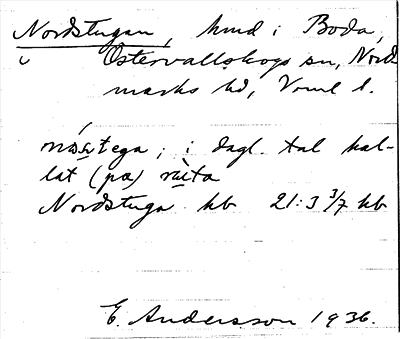 Nordstugan, hmd i Boda,
Östervallskogs sn, Nord
marks hd, Vrml l.
i dagl. tal kal-
lat (på)
Nordstuga kb 21:3 3/7 kb
E. Andersson 1936.